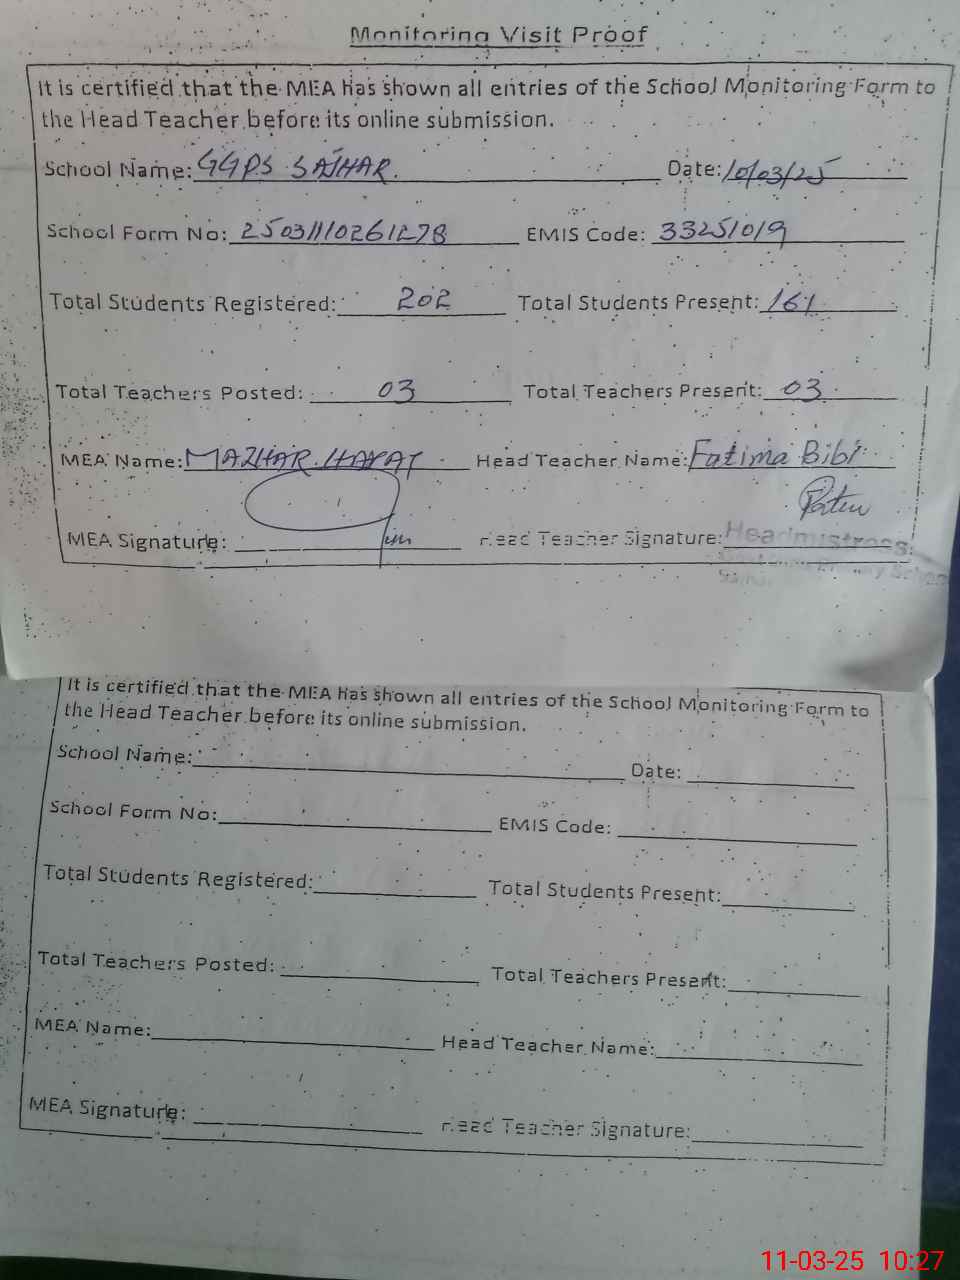 Monitoring Visit Proof
It is certified that the MEA has shown all entries of the School Monitoring Form to
the Head Teacher before its online submission.
School Name: GGPS SAJHAR. Date: 10/03/25
School Form No: 25031110261278 EMIS Code: 33251019
Total Students Registered: 202 Total Students Present: 161
Total Teachers Posted: 03 Total Teachers Present: 03
MEA Name: MAZHAR HAYAT Head Teacher Name: Fatima Bibi
MEA Signature: Head Teacher Signature: Headmistress
Primary School
It is certified that the MEA has shown all entries of the School Monitoring Form to
the Head Teacher before its online submission.
School Name: Date:
School Form No: EMIS Code:
Total Students Registered: Total Students Present:
Total Teachers Posted: Total Teachers Present:
MEA Name: Head Teacher Name:
MEA Signature: Head Teacher Signature:
11-03-25 10:27